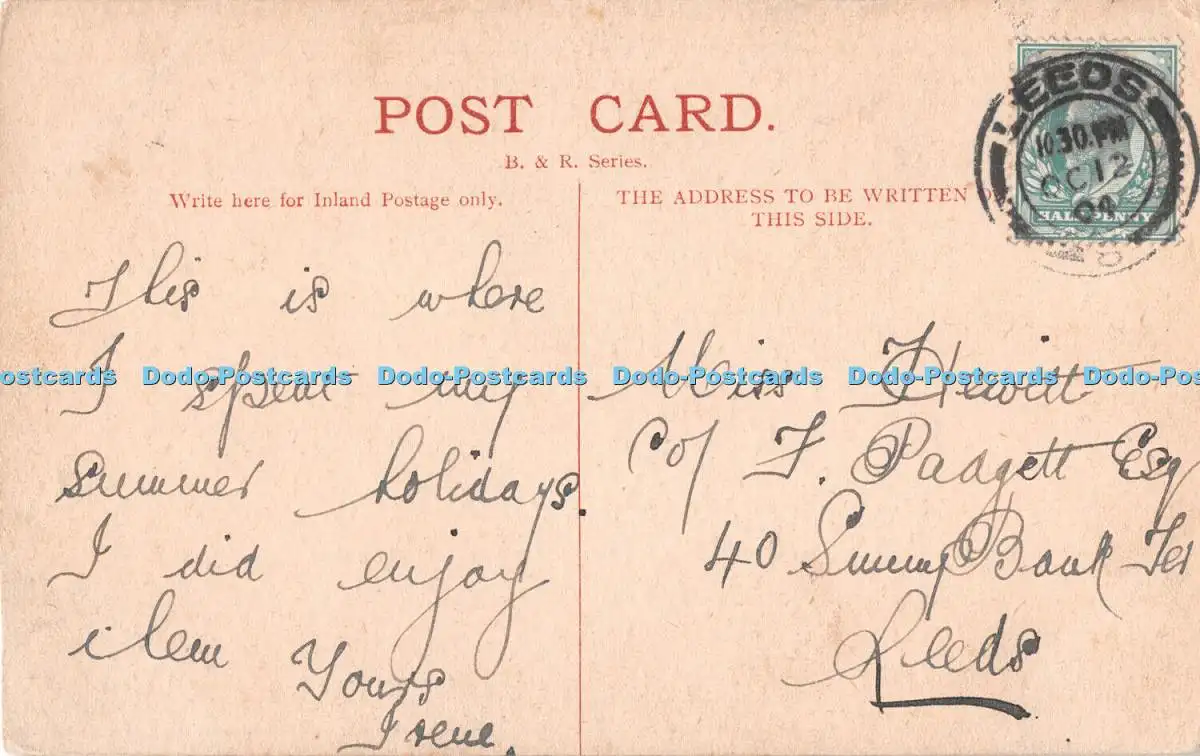 POST CARD.
B. & R. Series.
Write here for Inland Postage only.
This is where
I spent my
summer holidays.
I did enjoy
them
Yours
Irene.
THE ADDRESS TO BE WRITTEN
THIS SIDE.
Miss Hewitt
C/o F. Padgett Esq
40 Sunny Bank Ter
Leeds
LEEDS
10.30.PM
OC 12
04
HALFPENNY
ostcards Dodo-Postcards Dodo-Postcards Dodo-Postcards Dodo-Postcards Dodo-Pos